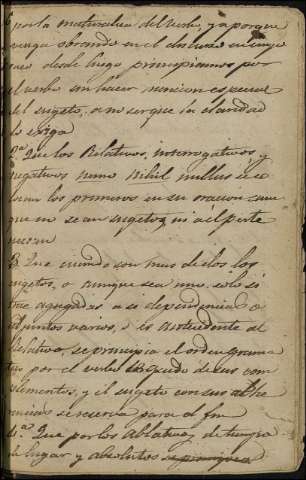 por la naturaleza del verbo, ya porque
venga obrando en el dativo en cuyo
caso desde luego principiamos por
el verbo sin hacer mencion especial
del sugeto, a no ser que la claridad
lo exija
2.ª Que los Relativos, interrogativos y
negativos como nihil nullus se co
locan los primeros en su oracion aun
que no sean sugetos, ni a el perte
nezcan
3. Que cuando son mas de dos los
sugetos, o aunque sea uno solo si
trae agregadas a si dependencias o
adjuntos varios, o es antecedente al
Relativo, se principia el orden grama
tical por el verbo seguido de sus com
plementos, y el sugeto con sus adhe
rencias se reserva para el fin
4.ª Que por los Ablativos de tiempo
de lugar y absolutos se principia